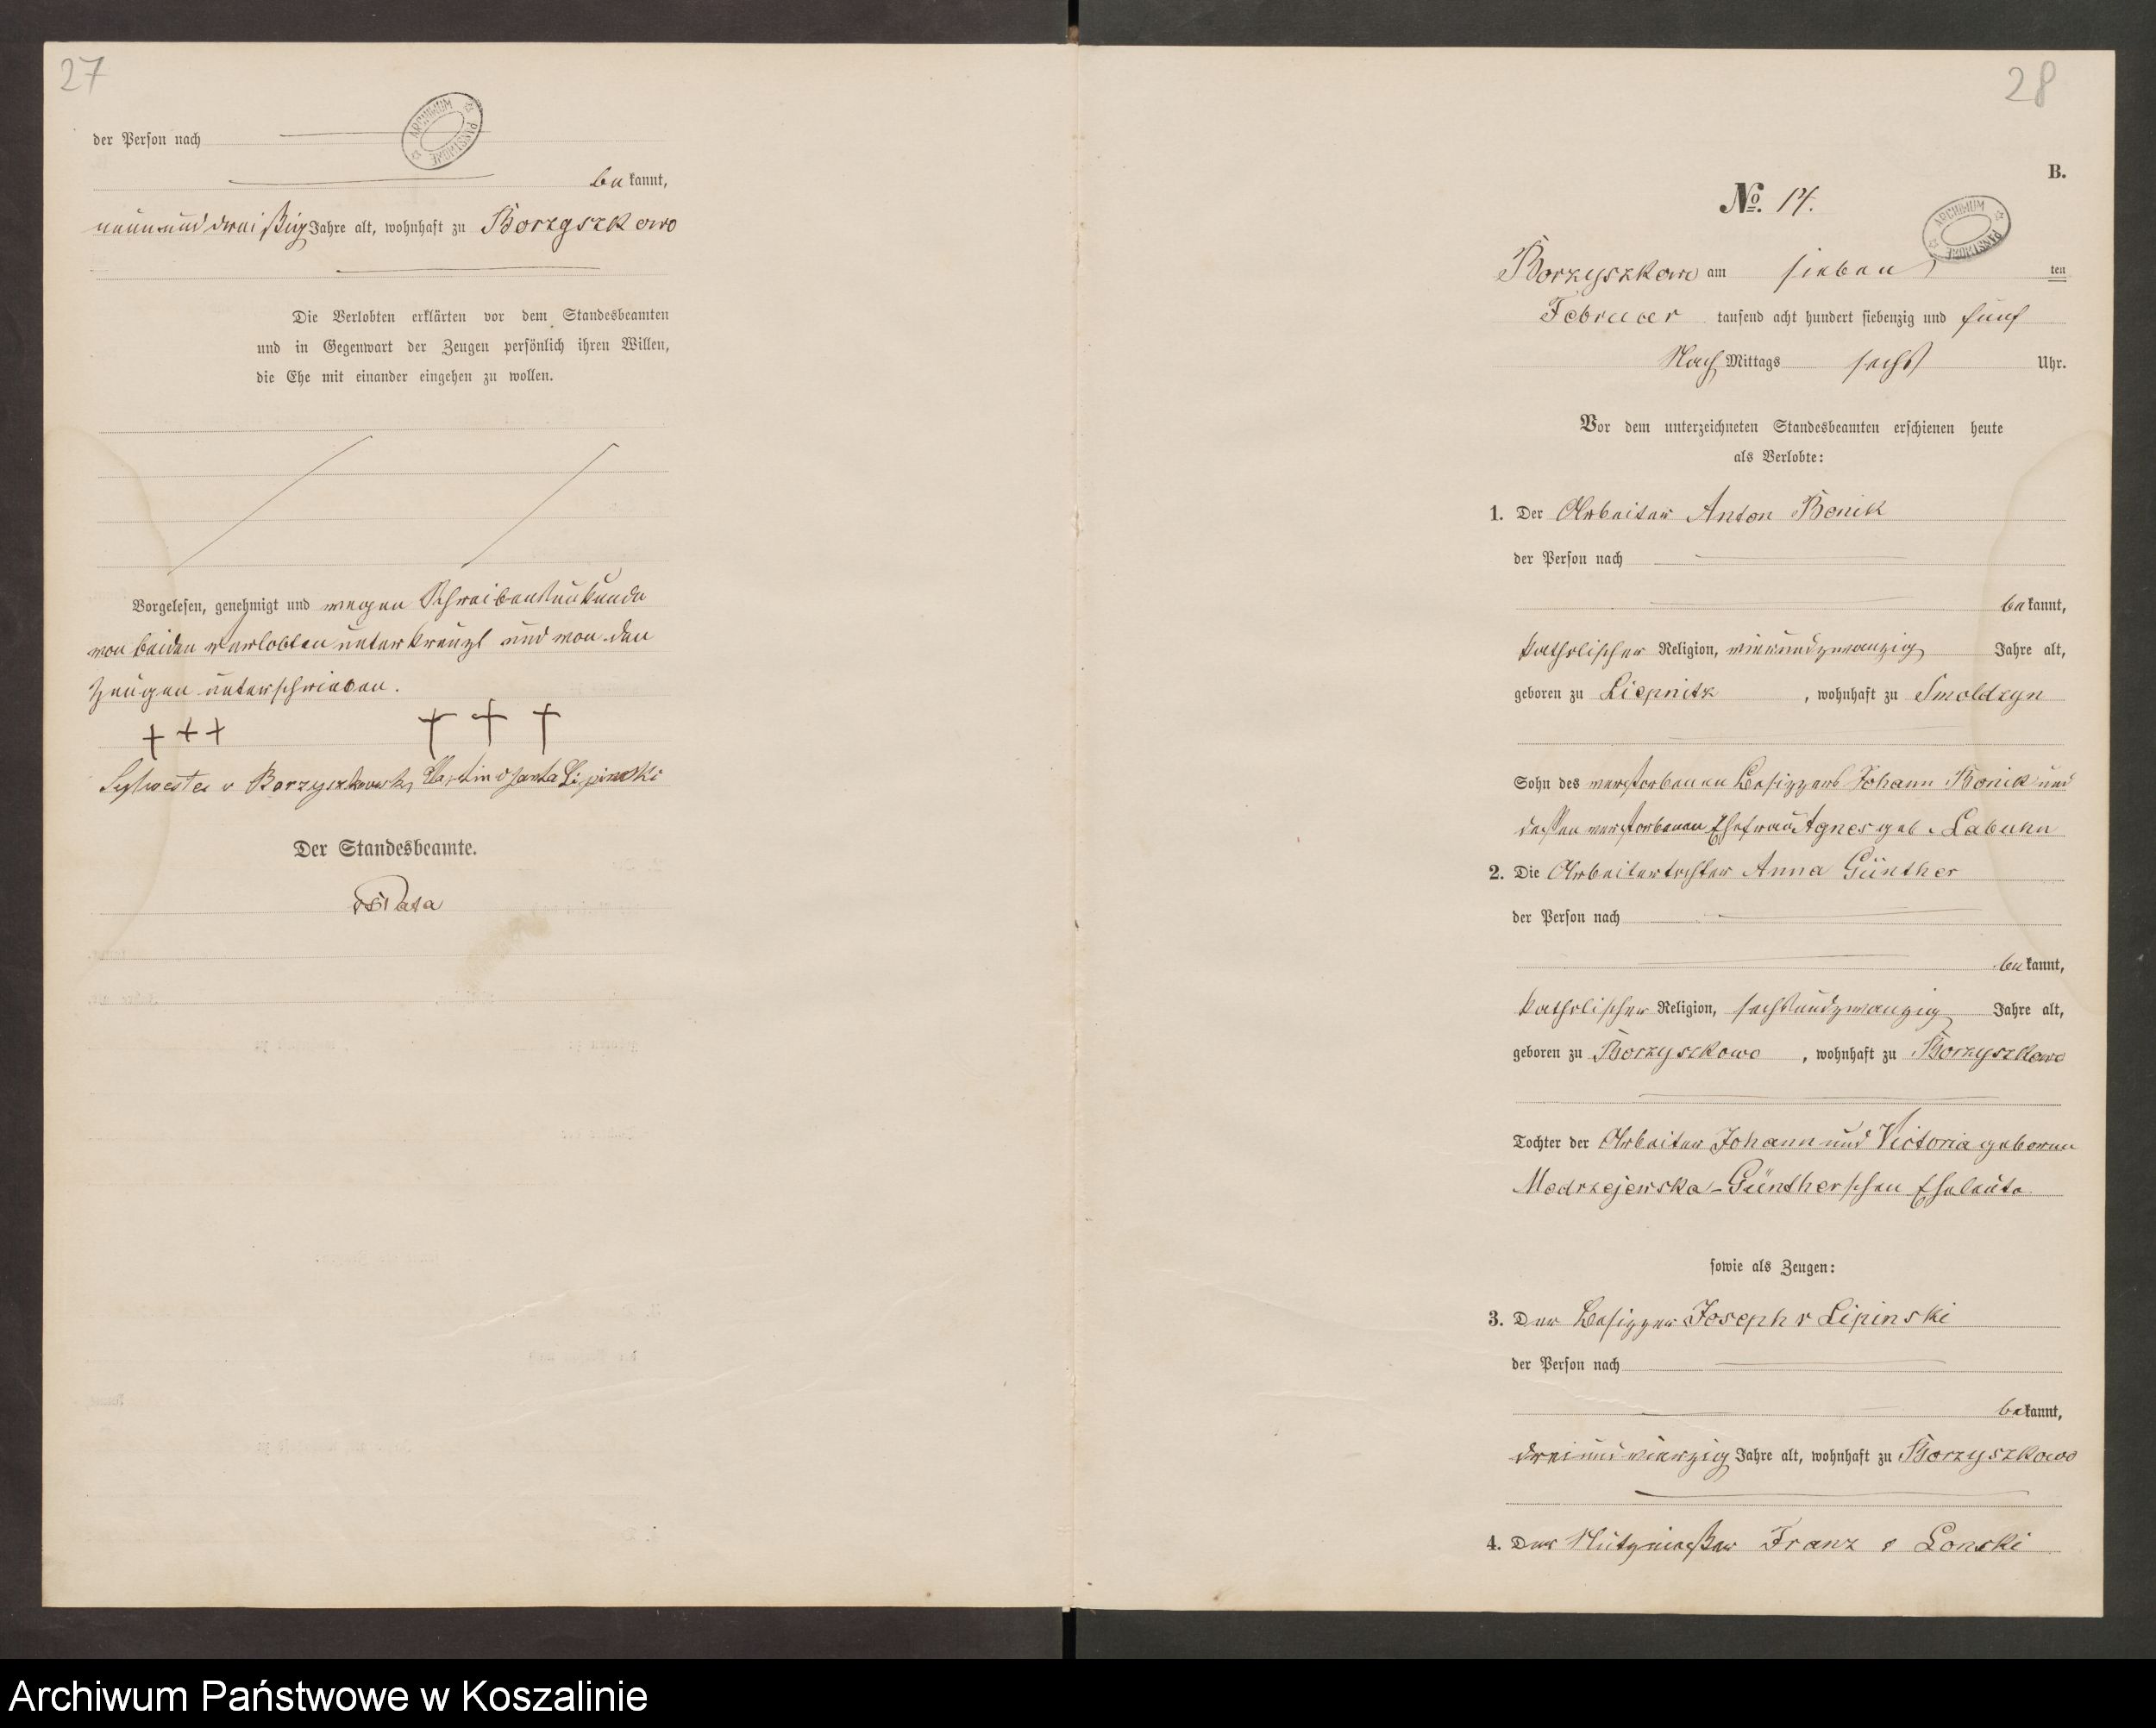 27
ARCHIWUM PAŃSTWOWE
der Person nach
bekannt,
neununddreißig Jahre alt, wohnhaft zu Borzyszkowo
Die Verlobten erklärten vor dem Standesbeamten
und in Gegenwart der Zeugen persönlich ihren Willen,
die Ehe mit einander eingehen zu wollen.
Vorgelesen, genehmigt und wegen Schreibensunkunde
von beiden Verlobten unterkreuzt und von den
Zeugen unterschrieben.
+++ +++
Sylwester v Borzyszkowski Lipinski
Der Standesbeamte.
28
B.
No. 14.
ARCHIWUM PAŃSTWOWE
Borzyszkowo am sieben ten
Februar tausend acht hundert siebenzig und fünf
Nach Mittags sechs Uhr.
Vor dem unterzeichneten Standesbeamten erschienen heute
als Verlobte:
1. Der Arbeiter Anton Bonik
der Person nach
bekannt,
katholischer Religion, vierundzwanzig Jahre alt,
geboren zu Liepnitz, wohnhaft zu Smoldzyn
Sohn des verstorbenen Besitzers Johann Bonik und
dessen verstorbenen Ehefrau Agnes geb. Labuhn
2. Die Arbeitertochter Anna Günther
der Person nach
bekannt,
katholischer Religion, sechsundzwanzig Jahre alt,
geboren zu Borzyszkowo, wohnhaft zu Borzyszkowo
Tochter der Arbeiter Johann und Victoria geborene
Modrzejewska-Günther schen Eheleute.
sowie als Zeugen:
3. Der Besitzer Joseph v Lipinski
der Person nach
bekannt,
dreiundvierzig Jahre alt, wohnhaft zu Borzyszkowo
4. Der Franz v Lonski
Archiwum Państwowe w Koszalinie